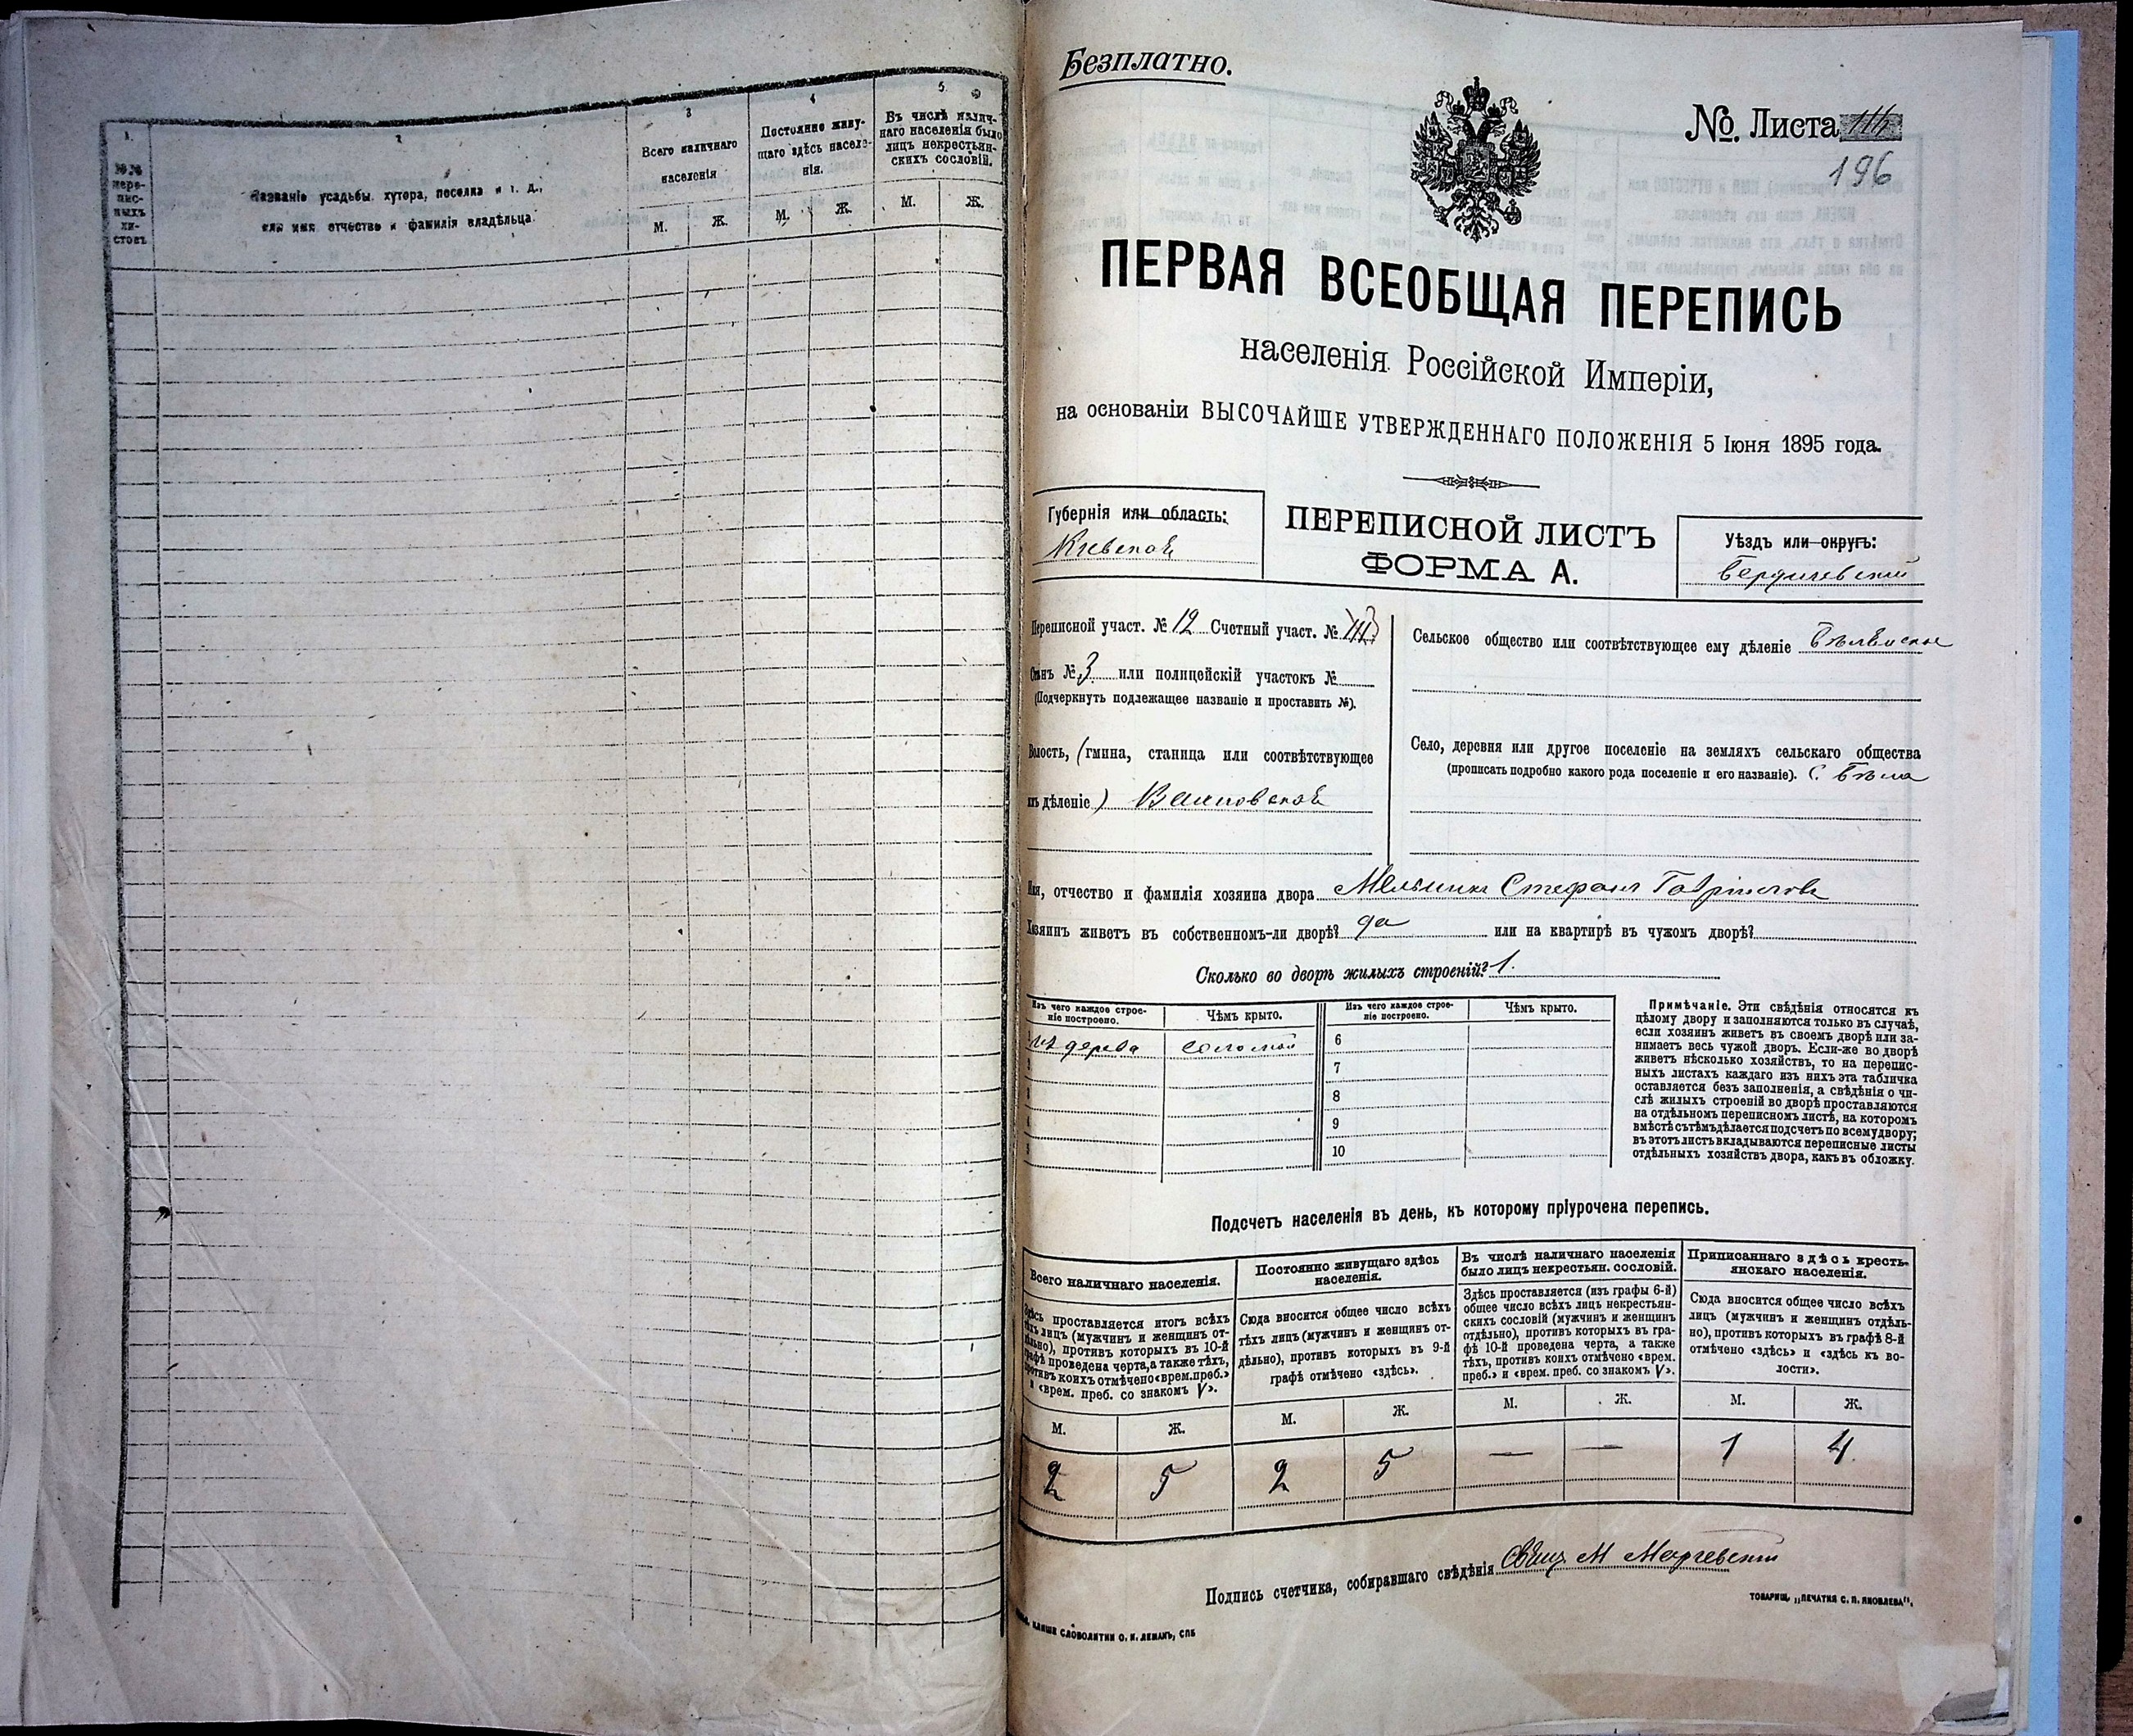 1.
2
3
4
5.
№№ пере-
пис-
ныхъ
ли-
стовъ
Названіе усадьбы, хутора, поселка и т. д.,
или имя, отчество и фамилія владѣльца.
Всего наличнаго
населенія
Постоянно живу-
щаго здѣсь населе-
нія.
Въ числѣ налич-
наго населенія было
лицъ некрестьян-
скихъ сословій.
М. Ж. М. Ж. М. Ж.
Безплатно.
№. Листа
196
ПЕРВАЯ ВСЕОБЩАЯ ПЕРЕПИСЬ
населенія Россійской Имперіи,
на основаніи ВЫСОЧАЙШЕ УТВЕРЖДЕННАГО ПОЛОЖЕНІЯ 5 Іюня 1895 года.
Губернія или область:
Кіевской
ПЕРЕПИСНОЙ ЛИСТЪ
ФОРМА А.
Уѣздъ или округъ:
Бердичевскій
Переписной участ. № 12 Счетный участ. №
Станъ № 3 или полицейскій участокъ №
(Подчеркнуть подлежащее названіе и проставить №).
Волость, (гмина, станица или соотвѣтствующее
имъ дѣленіе)
Сельское общество или соотвѣтствующее ему дѣленіе
Село, деревня или другое поселеніе на земляхъ сельскаго общества
(прописать подробно какого рода поселеніе и его названіе). С.
Имя, отчество и фамилія хозяина двора Мельникъ Стефанъ Гавріиловъ
Хозяинъ живетъ въ собственномъ-ли дворѣ? да или на квартирѣ въ чужомъ дворѣ?
Сколько во дворѣ жилыхъ строеній? 1.
Изъ чего каждое строе-
ніе построено.
Чѣмъ крыто.
Изъ чего каждое строе-
ніе построено.
Чѣмъ крыто.
изъ дерева соломой 6
7
8
9
10
Примѣчаніе. Эти свѣдѣнія относятся къ
цѣлому двору и заполняются только въ случаѣ,
если хозяинъ живетъ въ своемъ дворѣ или за-
нимаетъ весь чужой дворъ. Если-же во дворѣ
живетъ нѣсколько хозяйствъ, то на перепис-
ныхъ листахъ каждаго изъ нихъ эта табличка
оставляется безъ заполненія, а свѣдѣнія о чи-
слѣ жилыхъ строеній во дворѣ проставляются
на отдѣльномъ переписномъ листѣ, на которомъ
вмѣстѣ съ тѣмъ дѣлается подсчетъ по всему двору;
въ этотъ листъ вкладываются переписные листы
отдѣльныхъ хозяйствъ двора, какъ въ обложку.
Подсчетъ населенія въ день, къ которому пріурочена перепись.
Всего наличнаго населенія.
Здѣсь проставляется итогъ всѣхъ
тѣхъ лицъ (мужчинъ и женщинъ от-
дѣльно), противъ которыхъ въ 10-й
графѣ проведена черта, а также тѣхъ,
противъ коихъ отмѣчено «врем. преб.»
и «врем. преб. со знакомъ V».
Постоянно живущаго здѣсь
населенія.
Сюда вносится общее число всѣхъ
тѣхъ лицъ (мужчинъ и женщинъ от-
дѣльно), противъ которыхъ въ 9-й
графѣ отмѣчено «здѣсь».
Въ числѣ наличнаго населенія
было лицъ некрестьян. сословій.
Здѣсь проставляется (изъ графы 6-й)
общее число всѣхъ лицъ некрестьян-
скихъ сословій (мужчинъ и женщинъ
отдѣльно), противъ которыхъ въ гра-
фѣ 10-й проведена черта, а также
тѣхъ, противъ коихъ отмѣчено «врем.
преб.» и «врем. преб. со знакомъ V».
Приписаннаго здѣсь кресть-
янскаго населенія.
Сюда вносится общее число всѣхъ
лицъ (мужчинъ и женщинъ отдѣль-
но), противъ которыхъ въ графѣ 8-й
отмѣчено «здѣсь» и «здѣсь къ во-
лости».
М. Ж. М. Ж. М. Ж. М. Ж.
2 5 2 5 — — 1 4
Подпись счетчика, собиравшаго свѣдѣнія
ТОВАРИЩ. „ПЕЧАТНЯ С. П. ЯКОВЛЕВА".
КЛИШЕ СЛОВОЛИТНИ О. И. ЛЕМАНЪ, СПБ